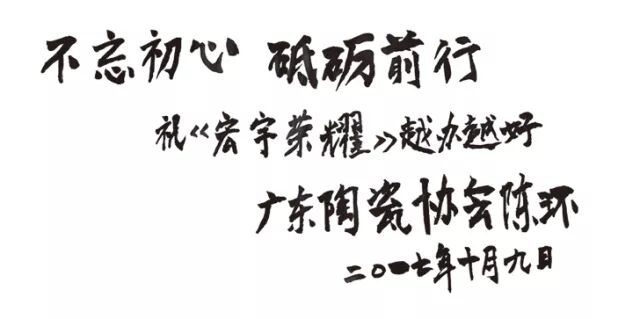 不忘初心 砥砺前行
祝《宏宇荣耀》越办越好
广东陶瓷协会陈环
二〇一七年十月九日